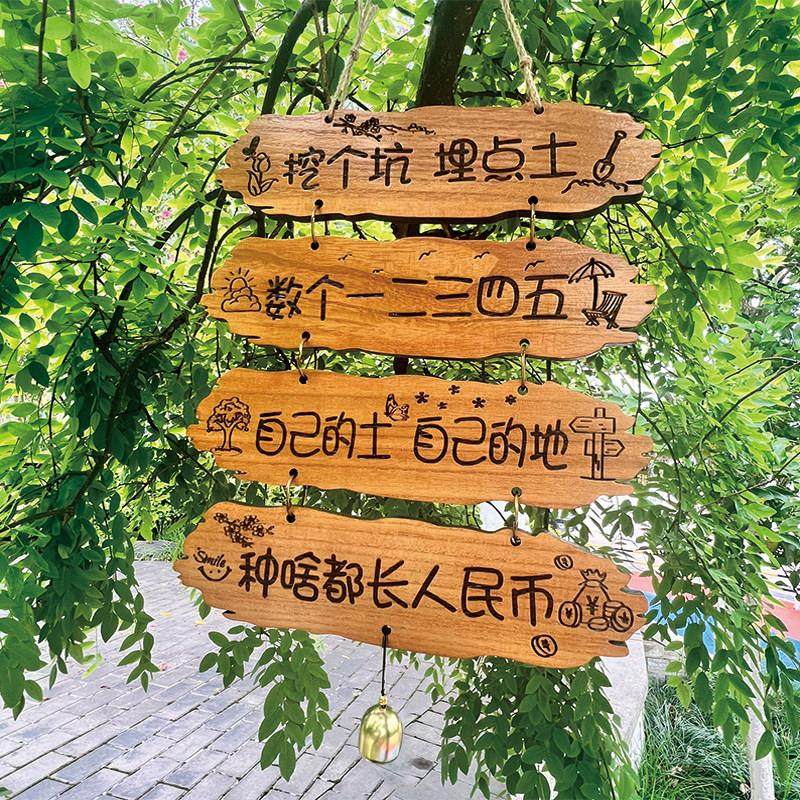 挖个坑 埋点土
数个一二三四五
自己的土 自己的地
Smile
种啥都长人民币